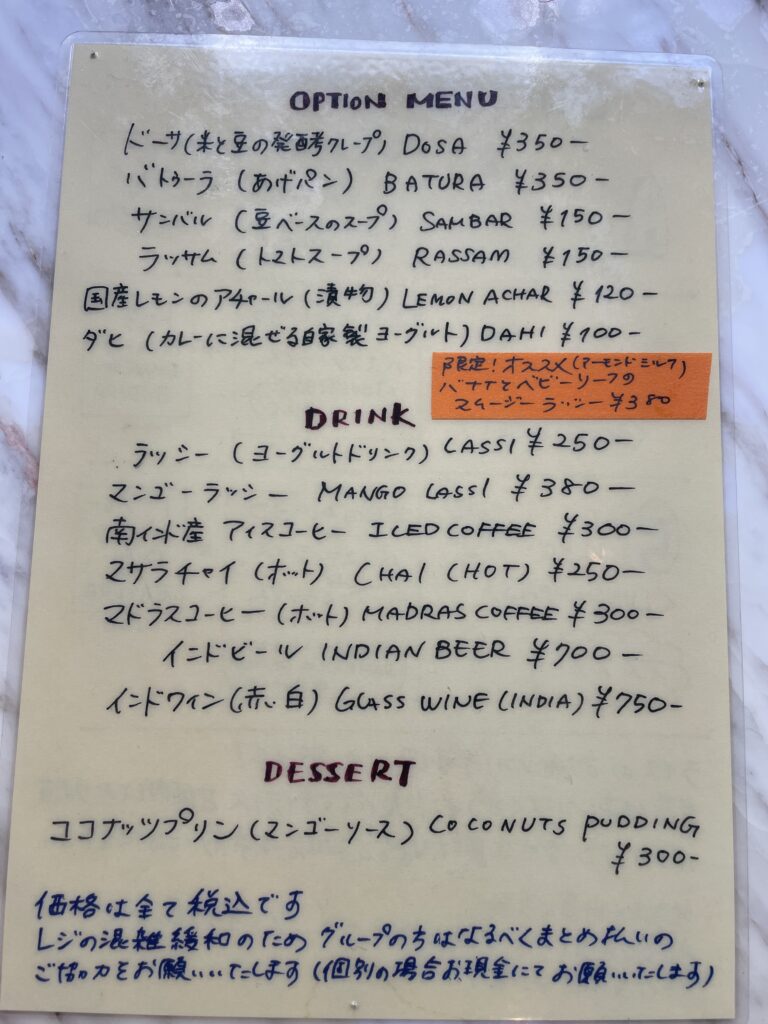 OPTION MENU
ドーサ(米と豆の発酵クレープ) DOSA ¥350-
バトゥーラ (あげパン) BATURA ¥350-
サンバル (豆ベースのスープ) SAMBAR ¥150-
ラッサム (トマトスープ) RASSAM ¥150-
国産レモンのアチャール (漬物) LEMON ACHAR ¥120-
ダヒ (カレーに混ぜる自家製ヨーグルト) DAHI ¥100-
限定!オススメ(アーモンドミルク)
バナナとベビーリーフの
スムージーラッシー ¥380
DRINK
ラッシー (ヨーグルトドリンク) LASSI ¥250-
マンゴーラッシー MANGO LASSI ¥380-
南インド産 アイスコーヒー ICED COFFEE ¥300-
マサラチャイ (ホット) CHAI (HOT) ¥250-
マドラスコーヒー (ホット) MADRAS COFFEE ¥300-
インドビール INDIAN BEER ¥700-
インドワイン(赤、白) GLASS WINE (INDIA) ¥750-
DESSERT
ココナッツプリン (マンゴーソース) COCONUTS PUDDING
¥300-
価格は全て税込です
レジの混雑緩和のため グループの方はなるべくまとめ払いの
ご協力をお願いいたします (個別の場合お現金にてお願いいたします)